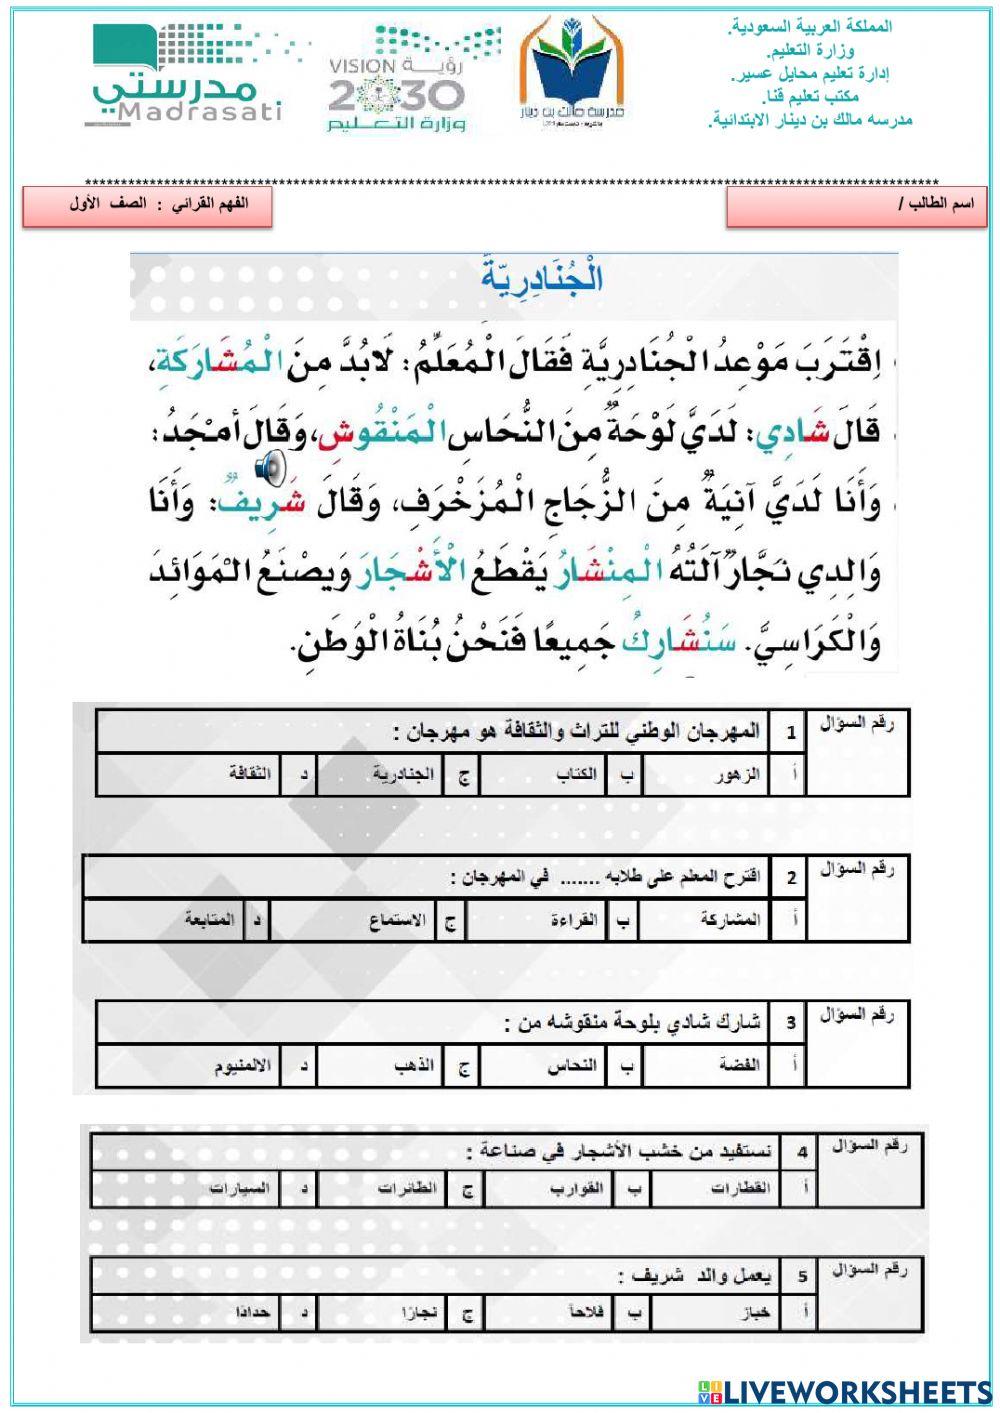 المملكة العربية السعودية.
وزارة التعليم.
إدارة تعليم محايل عسير.
مكتب تعليم قنا.
مدرسه مالك بن دينار الابتدائية.
مدرسة مالك بن دينار
رؤيــة VISION
2030
وزارة التعــليم
مدرستي
Madrasati
اسم الطالب /
الفهم القرائي : الصف الأول
الْجُنَادِرِيّةَ
اِقْتَرَبَ مَوْعِدُ الْجُنَادِرِيَّةِ فَقَالَ الْمُعَلِّمُ: لَابُدَّ مِنَ الْمُشَارَكَةِ،
قَالَ شَادِي: لَدَيَّ لَوْحَةٌ مِنَ النُّحَاسِ الْمَنْقُوشِ، وَقَالَ أَمْجَدُ:
وَأَنَا لَدَيَّ آنِيَةٌ مِنَ الزُّجَاجِ الْمُزَخْرَفِ، وَقَالَ شَرِيفٌ: وَأَنَا
وَالِدِي نَجَّارٌ آلَتُهُ الْمِنْشَارُ يَقْطَعُ الْأَشْجَارَ وَيَصْنَعُ الْمَوَائِدَ
وَالْكَرَاسِيَّ. سَنُشَارِكُ جَمِيعًا فَنَحْنُ بُنَاةُ الْوَطَنِ.
رقم السؤال 1 المهرجان الوطني للتراث والثقافة هو مهرجان :
أ الزهور ب الكتاب ج الجنادرية د الثقافة
رقم السؤال 2 اقترح المعلم على طلابه ....... في المهرجان :
أ المشاركة ب القراءة ج الاستماع د المتابعة
رقم السؤال 3 شارك شادي بلوحة منقوشه من :
أ الفضة ب النحاس ج الذهب د الالمنيوم
رقم السؤال 4 نستفيد من خشب الأشجار في صناعة :
أ القطارات ب القوارب ج الطائرات د السيارات
رقم السؤال 5 يعمل والد شريف :
أ خباز ب فلاحاً ج نجارًا د حدادًا
LIVEWORKSHEETS